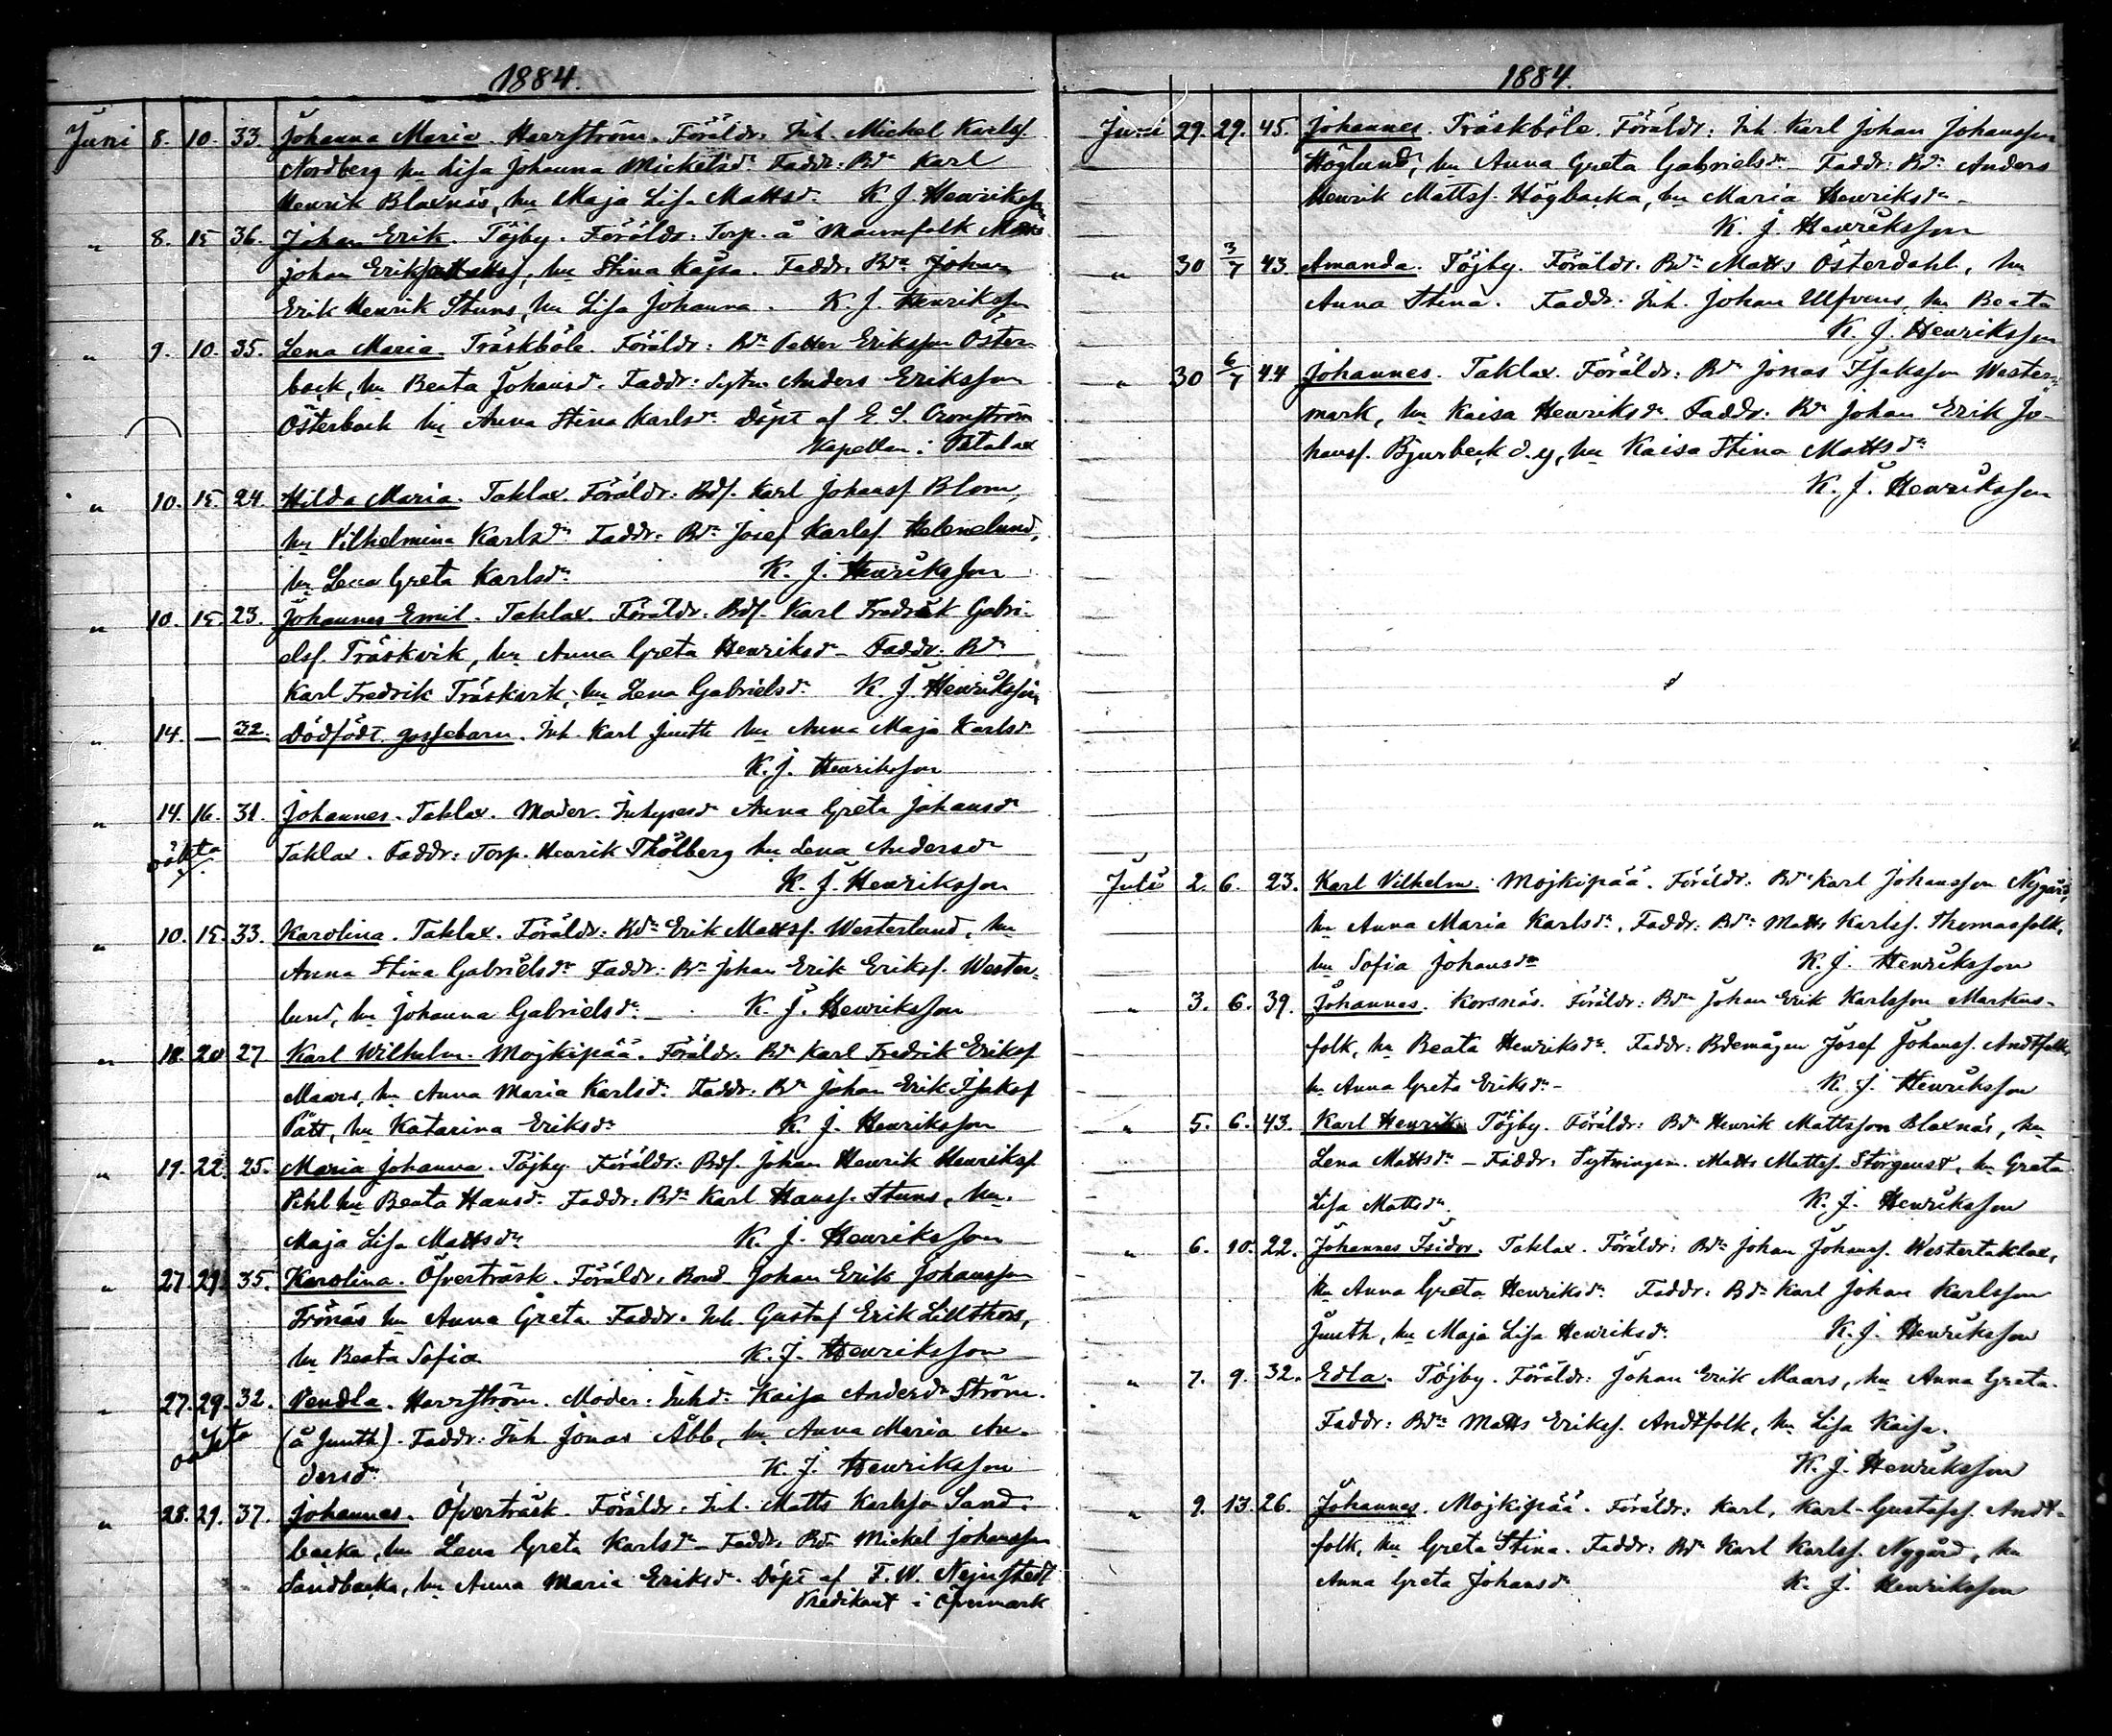 1884.
Juni 8. 10. 33. Johanna Maria. Harrström. Föräldr: Inh. Mickel Karlss.
Nordberg hu Lisa Johanna Mickelsdr. Faddr: Bdn Karl
Henrik Blaxnäs, hu Maja Lisa Mattsdr. K. J. Henriksson
" 8. 15 36. Johan Erik. Töjby. Föräldr: Torp. å Maunfolk Matts
Johan Eriksson, hu Stina Kajsa. Faddr. Bdn Johan
Erik Henrik Stuns, hu Lisa Johanna. K. J. Henriksson
" 9. 10. 35. Lena Maria. Träskböle. Föräldr: Bdn Petter Eriksson Öster-
back, hu Beata Johansd. Faddr: Sytn. Anders Eriksson
Österback hu Anna Stina Karlsdr. Döpt af E. S. Cronström
Kapellan i Petalax
" 10. 15. 24. Hilda Maria. Taklax. Föräldr: Bds. Karl Johanss Blom,
hu Vilhelmina Karlsdr Faddr: Bdn Josef Karlss Helenelund,
hu Lena Greta Karlsdr. K. J. Henriksson
" 10. 15. 23. Johannes Emil. Taklax. Föräldr. Bds. Karl Fredrik Gabri-
elss. Träskvik, hu Anna Greta Henriksdr - Faddr: Bdn
Karl Fredrik Träskvik, hu Lena Gabrielsdr. K. J. Henriksson
" 14. — 32. Dödfödt gossebarn. Inh. Karl Junth hu Anna Maja Karlsdr
K. J. Henriksson
" 14. 16. 31. Johannes. Taklax. Moder. Inhysesdr Anna Greta Johansdr
oäkta Taklax. Faddr: Torp. Henrik Thölberg hu Lena Andersdr
K. J. Henriksson
" 10. 15. 33. Karolina. Taklax. Föräldr: Bdn Erik Mattss. Westerlund, hu
Anna Stina Gabrielsdr Faddr: Bn Johan Erik Erikss. Wester-
lund, hu Johanna Gabrielsdr. K. J. Henriksson
" 18. 20 27 Karl Wilhelm. Mojkipää. Föräldr. Bdn Karl Fredrik Erikss
Maars, hu Anna Maria Karlsdr. Faddr: Bdn Johan Erik Isakss
Pått, hu Katarina Eriksdr K. J. Henriksson
" 19. 22. 25. Maria Johanna. Töjby. Föräldr: Bds. Johan Henrik Henrikss.
Pehl hu Beata Hansdr. Faddr: Bdn Karl Hanss. Stuns, hu
Maja Lisa Mattsdr K. J. Henriksson
" 27. 29. 35. Karolina. Öfverträsk. Föräldr. Bond. Johan Erik Johansson
Frönäs hu Anna Greta. Faddr. Inh. Gustaf Erik Lillthors,
hu Beata Sofia K. J. Henriksson
" 27. 29. 32. Vendla. Harrström. Moder: Inhdr. Kaisa Andersdr Ström.
oäkta (å Junth). Faddr: Inh Jonas Åbb, hu Anna Maria An-
dersdr K. J. Henriksson
" 28. 29. 37. Johannes. Öfverträsk. Föräldr: Inh. Matts Karlsson Sand-
backa, hu Lena Greta Karlsdr - Faddr: Bdn Mickel Johansson
Sandbacka, hu Anna Maria Eriksdr. Döpt af F. W. Nejnstedt
Predikant i Öfvermark
1884.
Juni 29. 29. 45. Johannes. Träskböle. Föräldr: Inh. Karl Johan Johansson
Höglund, hu Anna Greta Gabrielsdr - Faddr: Bdn Anders
Henrik Mattss. Högbacka, hu Maria Henriksdr -
K. J. Henriksson
" 30 3/7 43. Amanda. Töjby. Föräldr. Bdn Matts Österdahl, hu
Anna Stina. Faddr: Inh. Johan Ulfvens, hu Beata
K. J. Henriksson
" 30 6/7 44 Johannes. Taklax. Föräldr: Bdn Jonas Isaksson Wester-
mark, hu Kaisa Henriksdr. Faddr. Bdn Johan Erik Jo-
hanss. Bjurbeck d.y, hu Kaisa Stina Mattsdr
K. J. Henriksson
Juli 2. 6. 23. Karl Vilhelm. Mojkipää. Föräldr: Bdn Karl Johansson Nygård,
hu Anna Maria Karlsdr. Faddr: Bdn Matts Karlss. Thomasfolk,
hu Sofia Johansdr K. J. Henriksson
" 3. 6. 39. Johannes. Korsnäs. Föräldr: Bdn Johan Erik Karlsson Markus-
folk, hu Beata Henriksdr. Faddr: Bdemågen Josef Johanss. Andtfolk,
hu Anna Greta Eriksdr - K. J. Henriksson
" 5. 6. 43. Karl Henrik. Töjby. Föräldr: Bdn Henrik Mattsson Blaxnäs, hu
Lena Mattsdr - Faddr: Sytningsm. Matts Mattss. Storgeust, hu Greta
Lisa Mattsdr. K. J. Henriksson
" 6. 10. 22. Johannes Isidor. Taklax. Föräldr: Bdn Johan Johanss. Westertaklax,
hu Anna Greta Henriksdr. Faddr: Bdn Karl Johan Karlsson
Junth, hu Maja Lisa Henriksdr. K. J. Henriksson
" 7. 9. 32. Edla. Töjby. Föräldr: Johan Erik Maars, hu Anna Greta.
Faddr: Bdn Matts Erikss. Andtfolk, hu Lisa Kaisa.
K. J. Henriksson
" 9. 13. 26. Johannes. Mojkipää. Föräldr: Karl, Karl-Gustafss. Andt-
folk, hu Greta Stina. Faddr: Bdn Karl Karlss. Nygård, hu
Anna Greta Johansdr K. J. Henriksson